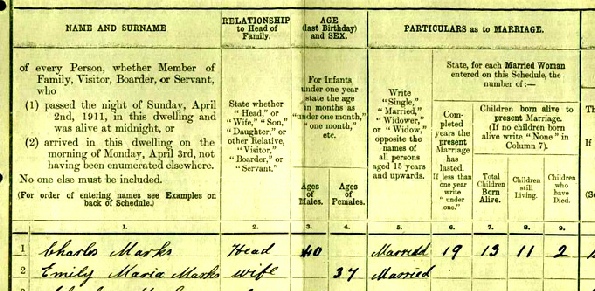 NAME AND SURNAME
of every Person, whether Member of
Family, Visitor, Boarder, or Servant,
who
(1) passed the night of Sunday, April
2nd, 1911, in this dwelling and
was alive at midnight, or
(2) arrived in this dwelling on the
morning of Monday, April 3rd, not
having been enumerated elsewhere.
No one else must be included.
(For order of entering names see Examples on
back of Schedule.)
RELATIONSHIP
to Head of
Family.
State whether
"Head," or
"Wife," "Son,"
"Daughter," or
other Relative,
"Visitor,"
"Boarder," or
"Servant."
AGE
(last Birthday)
and SEX.
For Infants
under one year
state the age
in months as
"under one month,"
"one month,"
etc.
Ages
of
Males.
Ages
of
Females.
PARTICULARS as to MARRIAGE.
Write
"Single,"
"Married,"
"Widower,"
or "Widow,"
opposite the
names of
all persons
aged 15 years
and upwards.
State, for each Married Woman
entered on this Schedule, the
number of:—
Com-
pleted
years the
present
Marriage
has
lasted.
If less than
one year
write
"under
one."
Children born alive to
present Marriage.
(If no children born
alive write "None" in
Column 7).
Total
Children
Born
Alive.
Children
still
Living.
Children
who
have
Died.
1. 2. 3. 4. 5. 6. 7. 8. 9.
1 Charles Marks Head 40 Married 19 13 11 2
2 Emily Maria Marks wife 37 Married